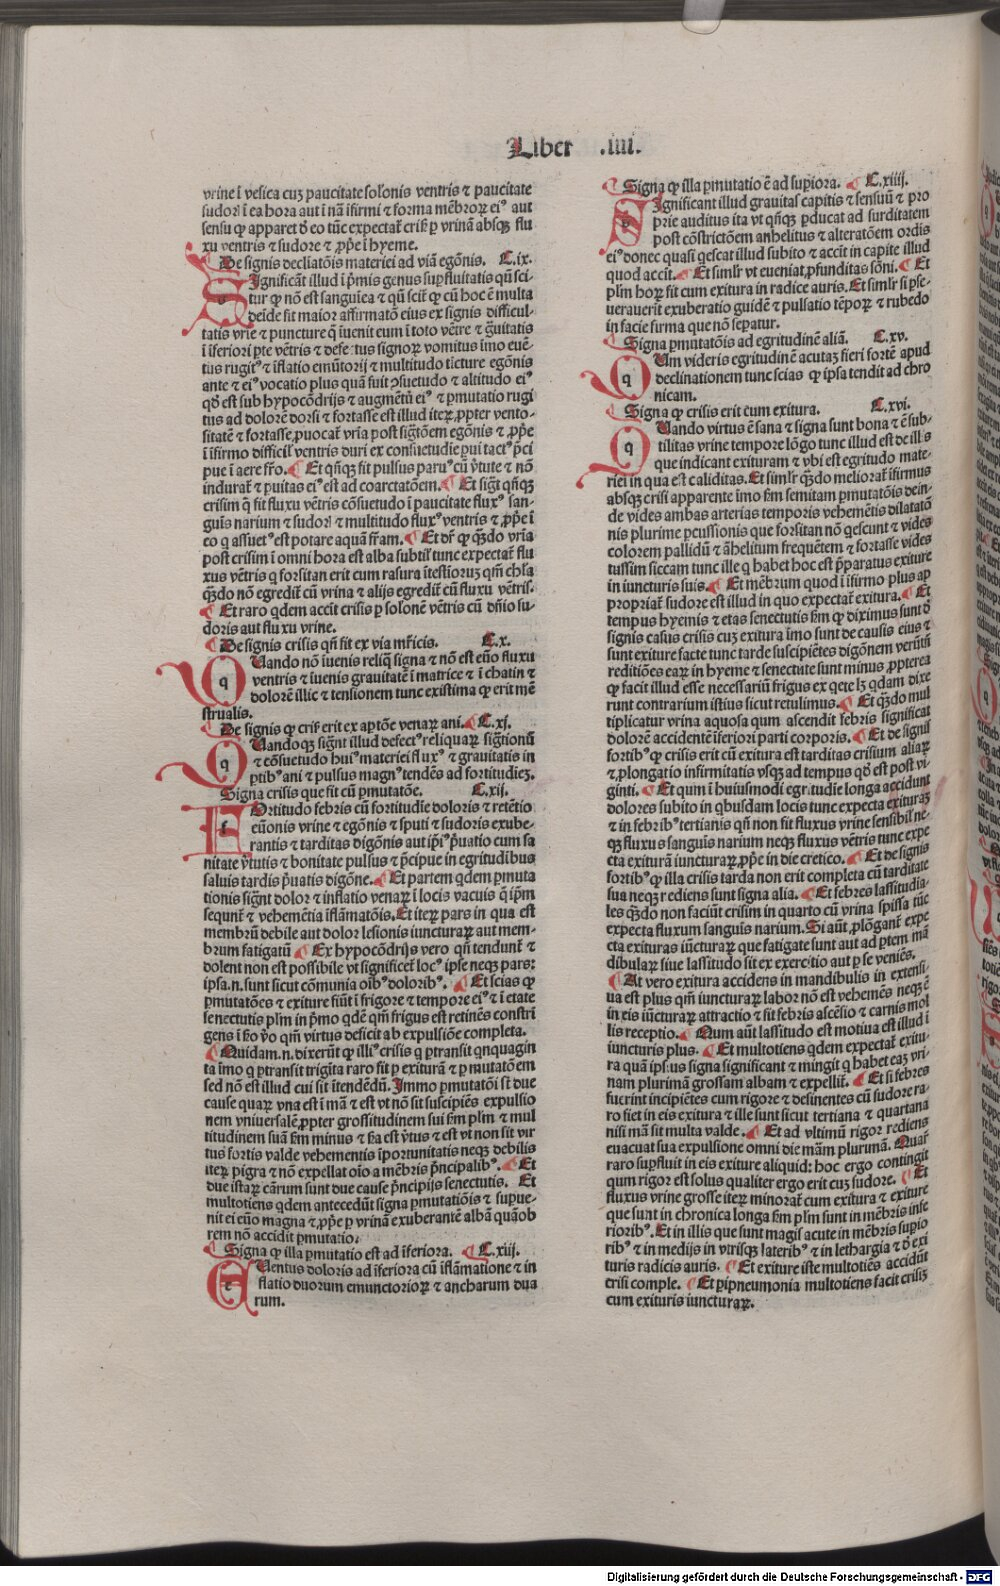 Liber .iiii.
vrine ĩ vesica cuz paucitate solonis ventris ⁊ paucitate
sudor ĩ ea hora aut ĩ nã ĩfirmi ⁊ forma mẽbroꝝ ei⁹ aut
sensu ꝙ apparet ꝺ eo tũc expectat̃ cris̃ p vrinã absqꝫ flu
xu ventris ⁊ sudore ⁊ ꝓpe ĩ hyeme.
De signis decliatõis materiei ad viã egõnis. C.ix.
Significãt illud ĩ pmis genus supfluitatis qñ sci-
tur ꝙ nõ est sanguiea ⁊ qñ scit̃ ꝙ cũ hoc ẽ multa
deide fit maior affirmatõ eius ex signis difficul-
tatis vrie ⁊ puncture q̃ iuenit eum ĩ toto vẽtre ⁊ g̃uitatis
ĩ ĩferiori pte vẽtris ⁊ defectus signoꝝ vomitus ĩmo euẽ-
tus rugit⁹ ⁊ ĩflatio emũtorij ⁊ multitudo tĩcture egõnis
ante ⁊ ei⁹ vocatio plus quã fuit ꝓsuetudo ⁊ altitudo ei⁹
qð est sub hypocõdrijs ⁊ augmẽtũ ei⁹ ⁊ pmutatio rugi
tus ad dolorẽ dorsi ⁊ fortasse est illud iteꝝ ꝓpter vento-
sitatẽ ⁊ fortasse ꝓuocat̃ vria post sig̃tõem egõnis ⁊ ꝓpe
ĩ ĩfirmo difficil̃ ventris duri ex consuetudie
pue ĩ aere fr̃o. Et qñqꝫ fit pulsus paru⁹ cũ v̓tute ⁊ nõ
indurat̃ ⁊ puitas ei⁹ est ad coarctatõem. Et sig̃t qñqꝫ
crisim q̃ fit fluxu vẽtris cõsuetudo ĩ paucitate flux⁹ san-
guis narium ⁊ sudor ⁊ multitudo flux⁹ ventris ⁊ ꝓpe ĩ
eo q assuet⁹ est potare aquã fr̃am. Et dr̃ ꝙ qñdo vria
post crisim ĩ omni hora est alba subtil̃ tunc expectat̃ flu
xus vẽtris q forsitan erit cum rasura ĩtestioruz qm̃
qñdo nõ egredit̃ cũ vrina ⁊ alijs egredit̃ cũ fluxu vẽtris.
Et raro qdem accit crisis p solonẽ vẽtris cũ dñio su-
doris aut fluxu vrine.
De signis crisis qñ fit ex via mr̃icis. C.x.
Quando nõ iuenis reliq̃ signa ⁊ nõ est eũo fluxu
ventris ⁊ iuenis grauitatẽ ĩ matrice ⁊ ĩ chatin ⁊
dolorẽ illic ⁊ tensionem tunc existima ꝙ erit mẽ
strualis.
De signis ꝙ cris̃ erit ex aptõe venaꝝ ani. C.xj.
Quandoqꝫ sig̃nt illud defect⁹ reliquaꝝ sig̃tionũ
⁊ cõsuetudo hui⁹ materiei flux⁹ ⁊ grauitatis in
ptib⁹ ani ⁊ pulsus magn⁹ tendẽs ad fortitudiez.
Signa crisis que fit cũ pmutatõe. C.xij.
Fortitudo febris cũ fortitudie doloris ⁊ retẽtio
eũonis vrine ⁊ egõnis ⁊ sputi ⁊ sudoris exube-
rantis ⁊ tarditas digõnis aut ip̃i⁹ p̃uatio cum sa
nitate v̓tutis ⁊ bonitate pulsus ⁊ p̃cipue in egritudibus
saluis tardis p̃uatis digõne. Et partem qdem pmuta
tionis sig̃nt dolor ⁊ inflatio venaꝝ ĩ locis vacuis q̃ ip̃m
sequnt̃ ⁊ vehemẽtia ĩflãmatõis. Et iteꝝ pars in qua est
membrũ debile aut dolor lesionis iuncturaꝝ aut mem-
brum fatigatũ Ex hypocõdrijs vero qñ tendunt̃ ⁊
dolent non est possibile vt significet̃ loc⁹ ipse neqꝫ pars
ipsa.n. sunt sicut cõmunia oib⁹ dolorib⁹. Et scias ꝙ
pmutatões ⁊ exiture fiũt ĩ frigore ⁊ tempore ei⁹ ⁊ ĩ etate
senectutis plm in p̃mo qdẽ qm̃ frigus est retinẽs constri
gens ĩ ẜo v̓o qm̃ virtus deficit ab expulsiõe completa.
Quidam.n. dixerũt ꝙ illi⁹ crisis q ptransit qnquagin
ta ĩmo q ptransit trigĩta raro fit p exiturã ⁊ pmutatõem
sed nõ est illud cui sit ĩtendẽdũ. Immo pmutatõi st̃ due
cause quaꝝ vna est ĩ mã ⁊ est vt nõ sit suscipiẽs expulsio
nem vniuersalẽ ꝓpter grossitudinem sui ẜm plm ⁊ mul
titudinem suã ẜm minus ⁊ ẜa est v̓tus ⁊ est vt non sit vir
tus fortis valde vehementis ĩportunitatis neqꝫ debilis
iteꝝ pigra ⁊ nõ expellat oĩo a mẽbris p̃ncipalib⁹. Et
due istaꝝ cãrum sunt due cause p̃ncipijs senectutis. Et
multotiens qdem antecedũt signa pmutatiõis ⁊ supue-
nit ei eũo magna ⁊ ꝓpe p vrinã exuberantẽ albã quãob
rem nõ accidit pmutatio.
Signa ꝙ illa pmutatio est ad ĩferiora. C.xiij.
Euentus doloris ad ĩferiora cũ ĩflãmatione ⁊ in
flatio duorum emunctorioꝝ ⁊ ancharum dua
rum.
Signa ꝙ illa pmutatio ẽ ad supiora. C.xiiij.
Significant illud grauitas capitis ⁊ sensuũ ⁊ pro
prie auditus ita vt qñqꝫ pducat ad surditatem
post cõstrictõem anhelitus ⁊ alteratõem ordis
ei⁹ donec quasi q̃escat illud subito ⁊ accit in capite illud
quod accit. Et simlr̃ vt eueniat ꝓfunditas sõni. Et
plm hoꝝ fit cum exitura in radice auris. Et simlr̃ si p̃se-
uerauerit exuberatio guidẽ ⁊ pulsatio tẽpoꝝ ⁊ rubedo
in facie firma que nõ sepatur.
Signa pmutatõis ad egritudinẽ aliã. C.xv.
Qum videris egritudinẽ acutaz fieri fortẽ apud
declinationem tunc scias ꝙ ipsa tendit ad chro
nicam.
Signa ꝙ crisis erit cum exitura. C.xvi.
Quando virtus ẽ sana ⁊ signa sunt bona ⁊ ẽ sub-
tilitas vrine tempore lõgo tunc illud est de illis
que indicant exituram ⁊ vbi est egritudo mate-
riei in qua est caliditas. Et simlr̃ qñdo meliorat̃ ĩfirmus
absqꝫ crisi apparente ĩmo ẜm semitam pmutatõis dein-
de vides ambas arterias temporis vehemẽtis dilatatõ
nis plurime pcussionis que forsitan nõ q̃scunt ⁊ vides
colorem pallidũ ⁊ ãhelitum frequẽtem ⁊ fortasse vides
tussim siccam tunc ille q habet hoc est p̃paratus exiture
in iuncturis suis. Et mẽbrum quod ĩ ĩfirmo plus ap
propriat̃ sudore est illud in quo expectat̃ exitura. Et
tempus hyemis ⁊ etas senectutis ẜm ꝙ diximus sunt ꝺ
signis casus crisis cuz exitura ĩmo sunt de causis eius ⁊
sunt exiture facte tunc tarde suscipiẽtes digõnem verũtñ
reditiões eaꝝ in hyeme ⁊ senectute sunt minus ꝓpterea
ꝙ facit illud esse necessariũ frigus ex q̃ete lꝫ qdam dixe
runt contrarium istius sicut retulimus. Et qñdo mul
tiplicatur vrina aquosa qum ascendit febris significat
dolorẽ accidentẽ ĩferiori parti corporis. Et de signis
fortib⁹ ꝙ crisis erit cũ exitura est tarditas crisium aliaꝝ
⁊ ꝓlongatio infirmitatis vsqꝫ ad tempus qð est post vi-
ginti. Et qum ĩ huiusmodi egritudie longa accidunt
dolores subito in qbusdam locis tunc expecta exituraz
⁊ in febrib⁹ tertianis qñ non fit fluxus vrine sensibil̃ ne-
qꝫ fluxus sanguis narium neqꝫ fluxus vẽtris tunc expe
cta exiturã iuncturaꝝ ꝓpe in die cretico. Et de signis
fortib⁹ ꝙ illa crisis tarda non erit completa cũ tarditate
sua neqꝫ rediens sunt signa alia. Et febres lassitudia-
les qñdo non faciũt crisim in quarto cũ vrina spissa tũc
expecta fluxum sanguis narium. Si aũt ꝓlõgant̃ expe
cta exituras iũcturaꝝ que fatigate sunt aut ad ptem mã
dibulaꝝ siue lassitudo sit ex exercitio aut p se veniẽs.
At vero exitura accidens in mandibulis in extensi
ua est plus qm̃ iuncturaꝝ labor nõ est vehemẽs neqꝫ ẽ
in eis iũcturaꝝ attractio ⁊ fit febris ascẽsio ⁊ carnis mol
lis receptio. Num aũt lassitudo est motiua est illud ĩ
iuncturis plus. Et multotiens qdem expectat̃ exitu-
ra quã ipsius signa significant ⁊ mingit q habet eaz vri-
nam plurimã grossam albam ⁊ expellit̃. Et si febres
fuerint incipiẽtes cum rigore ⁊ desinentes cũ sudore ra-
ro fiet in eis exitura ⁊ ille sunt sicut tertiana ⁊ quartana
nisi mã sit multa valde. Et ad vltimũ rigor rediens
euacuat sua expulsione omni die mãm plurimã. Quar̃
raro supfluit in eis exiture aliquid: hoc ergo contingit
qum rigor est solus qualiter ergo erit cuz sudore. Et
fluxus vrine grosse iteꝝ minorat̃ cum exitura ⁊ exiture
que sunt in chronica longa ẜm plm sunt in mẽbris infe
riorib⁹. Et in illis que sunt magis acute in mẽbris supio
rib⁹ ⁊ in medijs in vtrisqꝫ laterib⁹ ⁊ in lethargia ⁊ ꝺ exi
turis radicis auris. Et exiture iste multotiẽs accidũt
crisi comple. Et pipneumonia multotiens facit crisiz
cum exituris iuncturaꝝ.
Digitalisierung gefördert durch die Deutsche Forschungsgemeinschaft - DFG